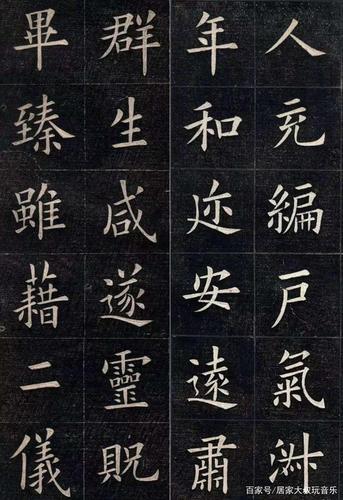 人充編戶氣淑
年和迩安遠肅
群生咸遂靈貺
畢臻雖藉二儀
百家号/居家大叔玩音乐